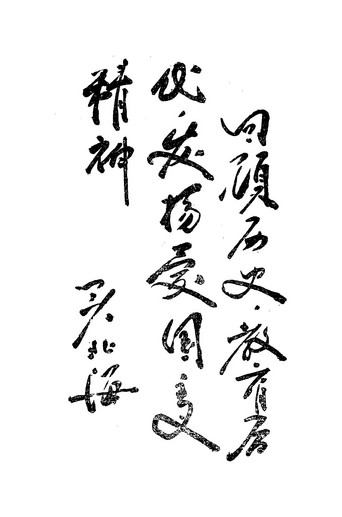 回顾历史，教育后
代，发扬爱国主义
精神
北海